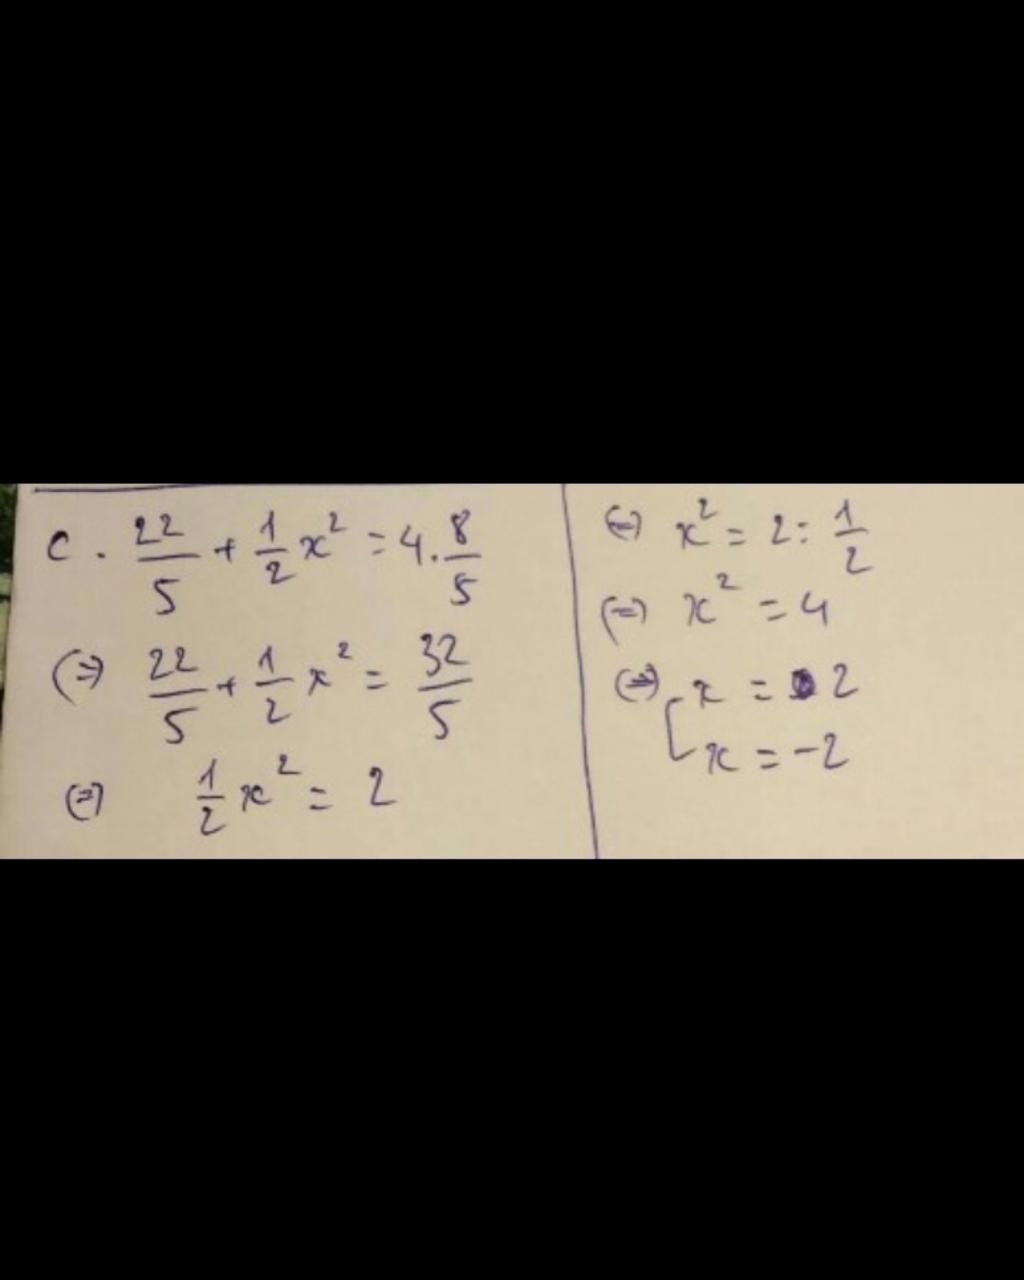 c. 22/5 + 1/2 x² = 4 . 8/5
(=) 22/5 + 1/2 x² = 32/5
(=) 1/2 x² = 2
(=) x² = 2 : 1/2
(=) x² = 4
(=) [ x = 2
x = -2